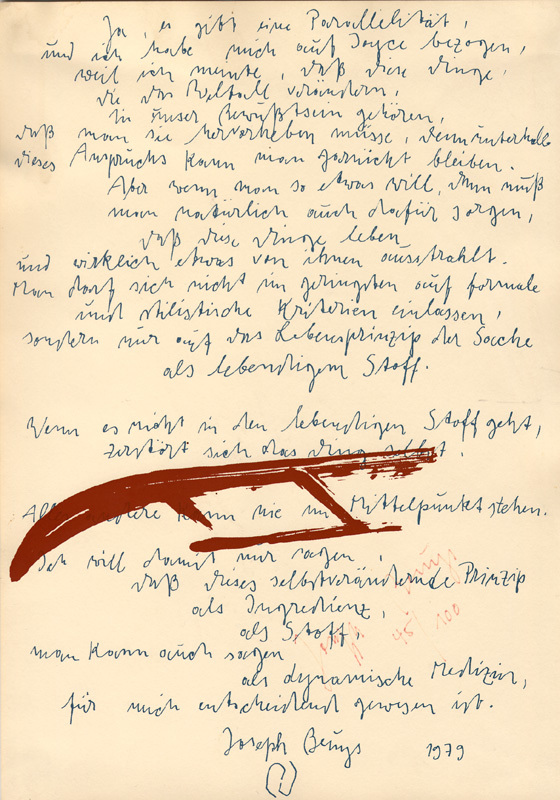 Ja, es gibt eine Parallelität,
und ich habe mich auf Joyce bezogen,
weil ich meinte, daß diese Dinge,
die das Weltall verändern,
in unser Bewußtsein gehören,
daß man sie hervorheben müsse, denn unterhalb
dieses Anspruchs kann man garnicht bleiben.
Aber wenn man so etwas will, dann muß
man natürlich auch dafür sorgen,
daß diese Dinge leben
und wirklich etwas von ihnen ausstrahlt.
Man darf sich nicht im geringsten auf formale
und stilistische Kriterien einlassen,
sondern nur auf das Lebensprinzip der Sache
als lebendigem Stoff.
Wenn es nicht in den lebendigen Stoff geht,
zerstört sich das Ding selbst.
kann nie im Mittelpunkt stehen.
Ich will damit nur sagen,
daß dieses selbstverändernde Prinzip
als Ingredienz,
als Stoff,
man kann auch sagen
als dynamische Medizin,
für mich entscheidend gewesen ist.
Joseph Beuys 1979
Joseph Beuys
45/100